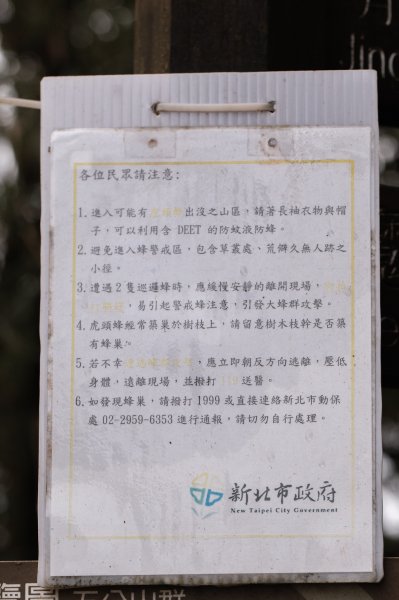 各位民眾請注意:
1.進入可能有虎頭蜂出沒之山區，請著長袖衣物與帽
子，可以利用含 DEET 的防蚊液防蜂。
2.避免進入蜂警戒區，包含草叢處、荒僻久無人跡之
小徑。
3.遭遇 2 隻巡邏蜂時，應緩慢安靜的離開現場，
，易引起警戒蜂注意，引發大蜂群攻擊。
4.虎頭蜂經常築巢於樹枝上，請留意樹木枝幹是否築
有蜂巢。
5.若不幸，應立即朝反方向逃離，壓低
身體，遠離現場，並撥打 119 送醫。
6.如發現蜂巢，請撥打 1999 或直接連絡新北市動保
處 02-2959-6353 進行通報，請切勿自行處理。
新北市政府
New Taipei City Government
五分山群